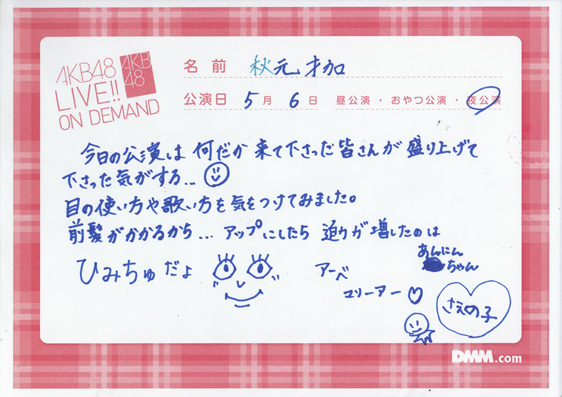 AKB48
LIVE!!
ON DEMAND
AKB
48
名前 秋元才加
公演日 5月6日 昼公演・おやつ公演・夜公演
今日の公演は何だか来て下さった皆さんが盛り上げて
下さった気がする...
目の使い方や歌い方を気をつけてみました。
前髪がかかるから... アップにしたら迫力が増したのは
ひみちゅだよ
アーベ
コリーアー♡
あんにん
ちゃん
さえの子
DMM.com